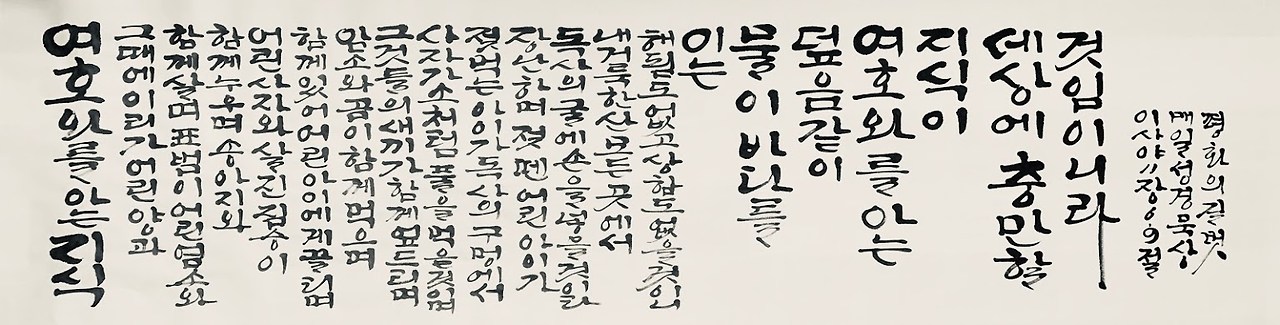 여호와를 아는 지식
그때에 이리가 어린 양과
함께 살며 표범이 어린 염소와
함께 누우며 송아지와
어린 사자와 살진 짐승이
함께 있어 어린 아이에게 끌리며
암소와 곰이 함께 먹으며
그것들의 새끼가 함께 엎드리며
사자가 소처럼 풀을 먹을 것이며
젖 먹는 아이가 독사의 구멍에서
장난하며 젖 뗀 어린 아이가
독사의 굴에 손을 넣을 것이라
내 거룩한 산 모든 곳에서
해됨도 없고 상함도 없을 것이니
이는
물이 바다를
덮음같이
여호와를 아는
지식이
세상에 충만할
것임이니라
이사야 11장 6.9절
매일성경묵상
평화의 길벗